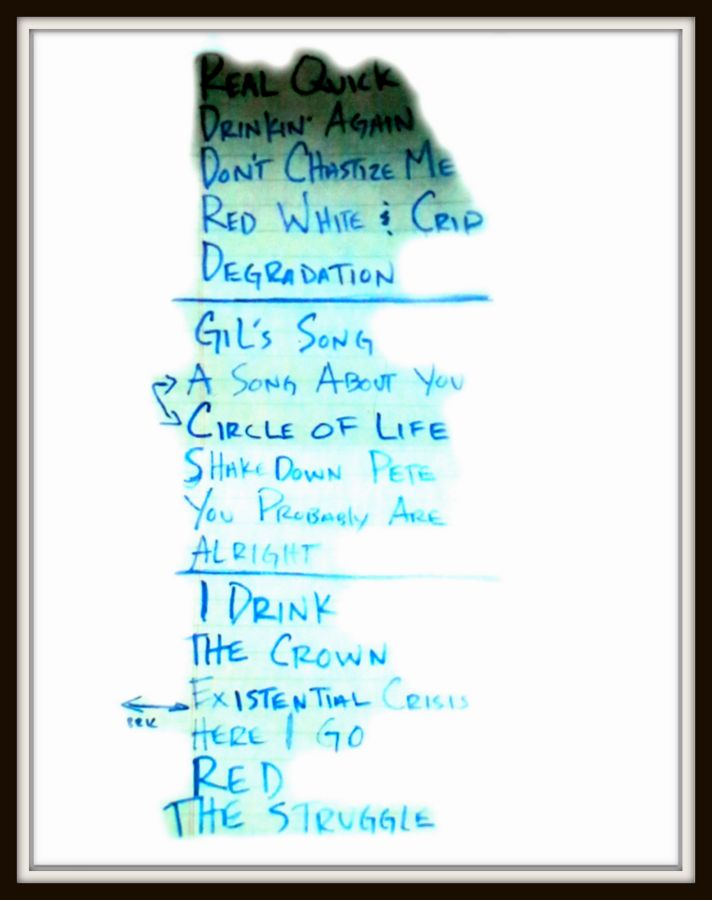 REAL QUICK
DRINKIN' AGAIN
DON'T CHASTIZE ME
RED WHITE & CRIP
DEGRADATION
GIL'S SONG
A SONG ABOUT YOU
CIRCLE OF LIFE
SHAKEDOWN PETE
YOU PROBABLY ARE
ALRIGHT
I DRINK
THE CROWN
EXISTENTIAL CRISIS
HERE I GO
RED
THE STRUGGLE